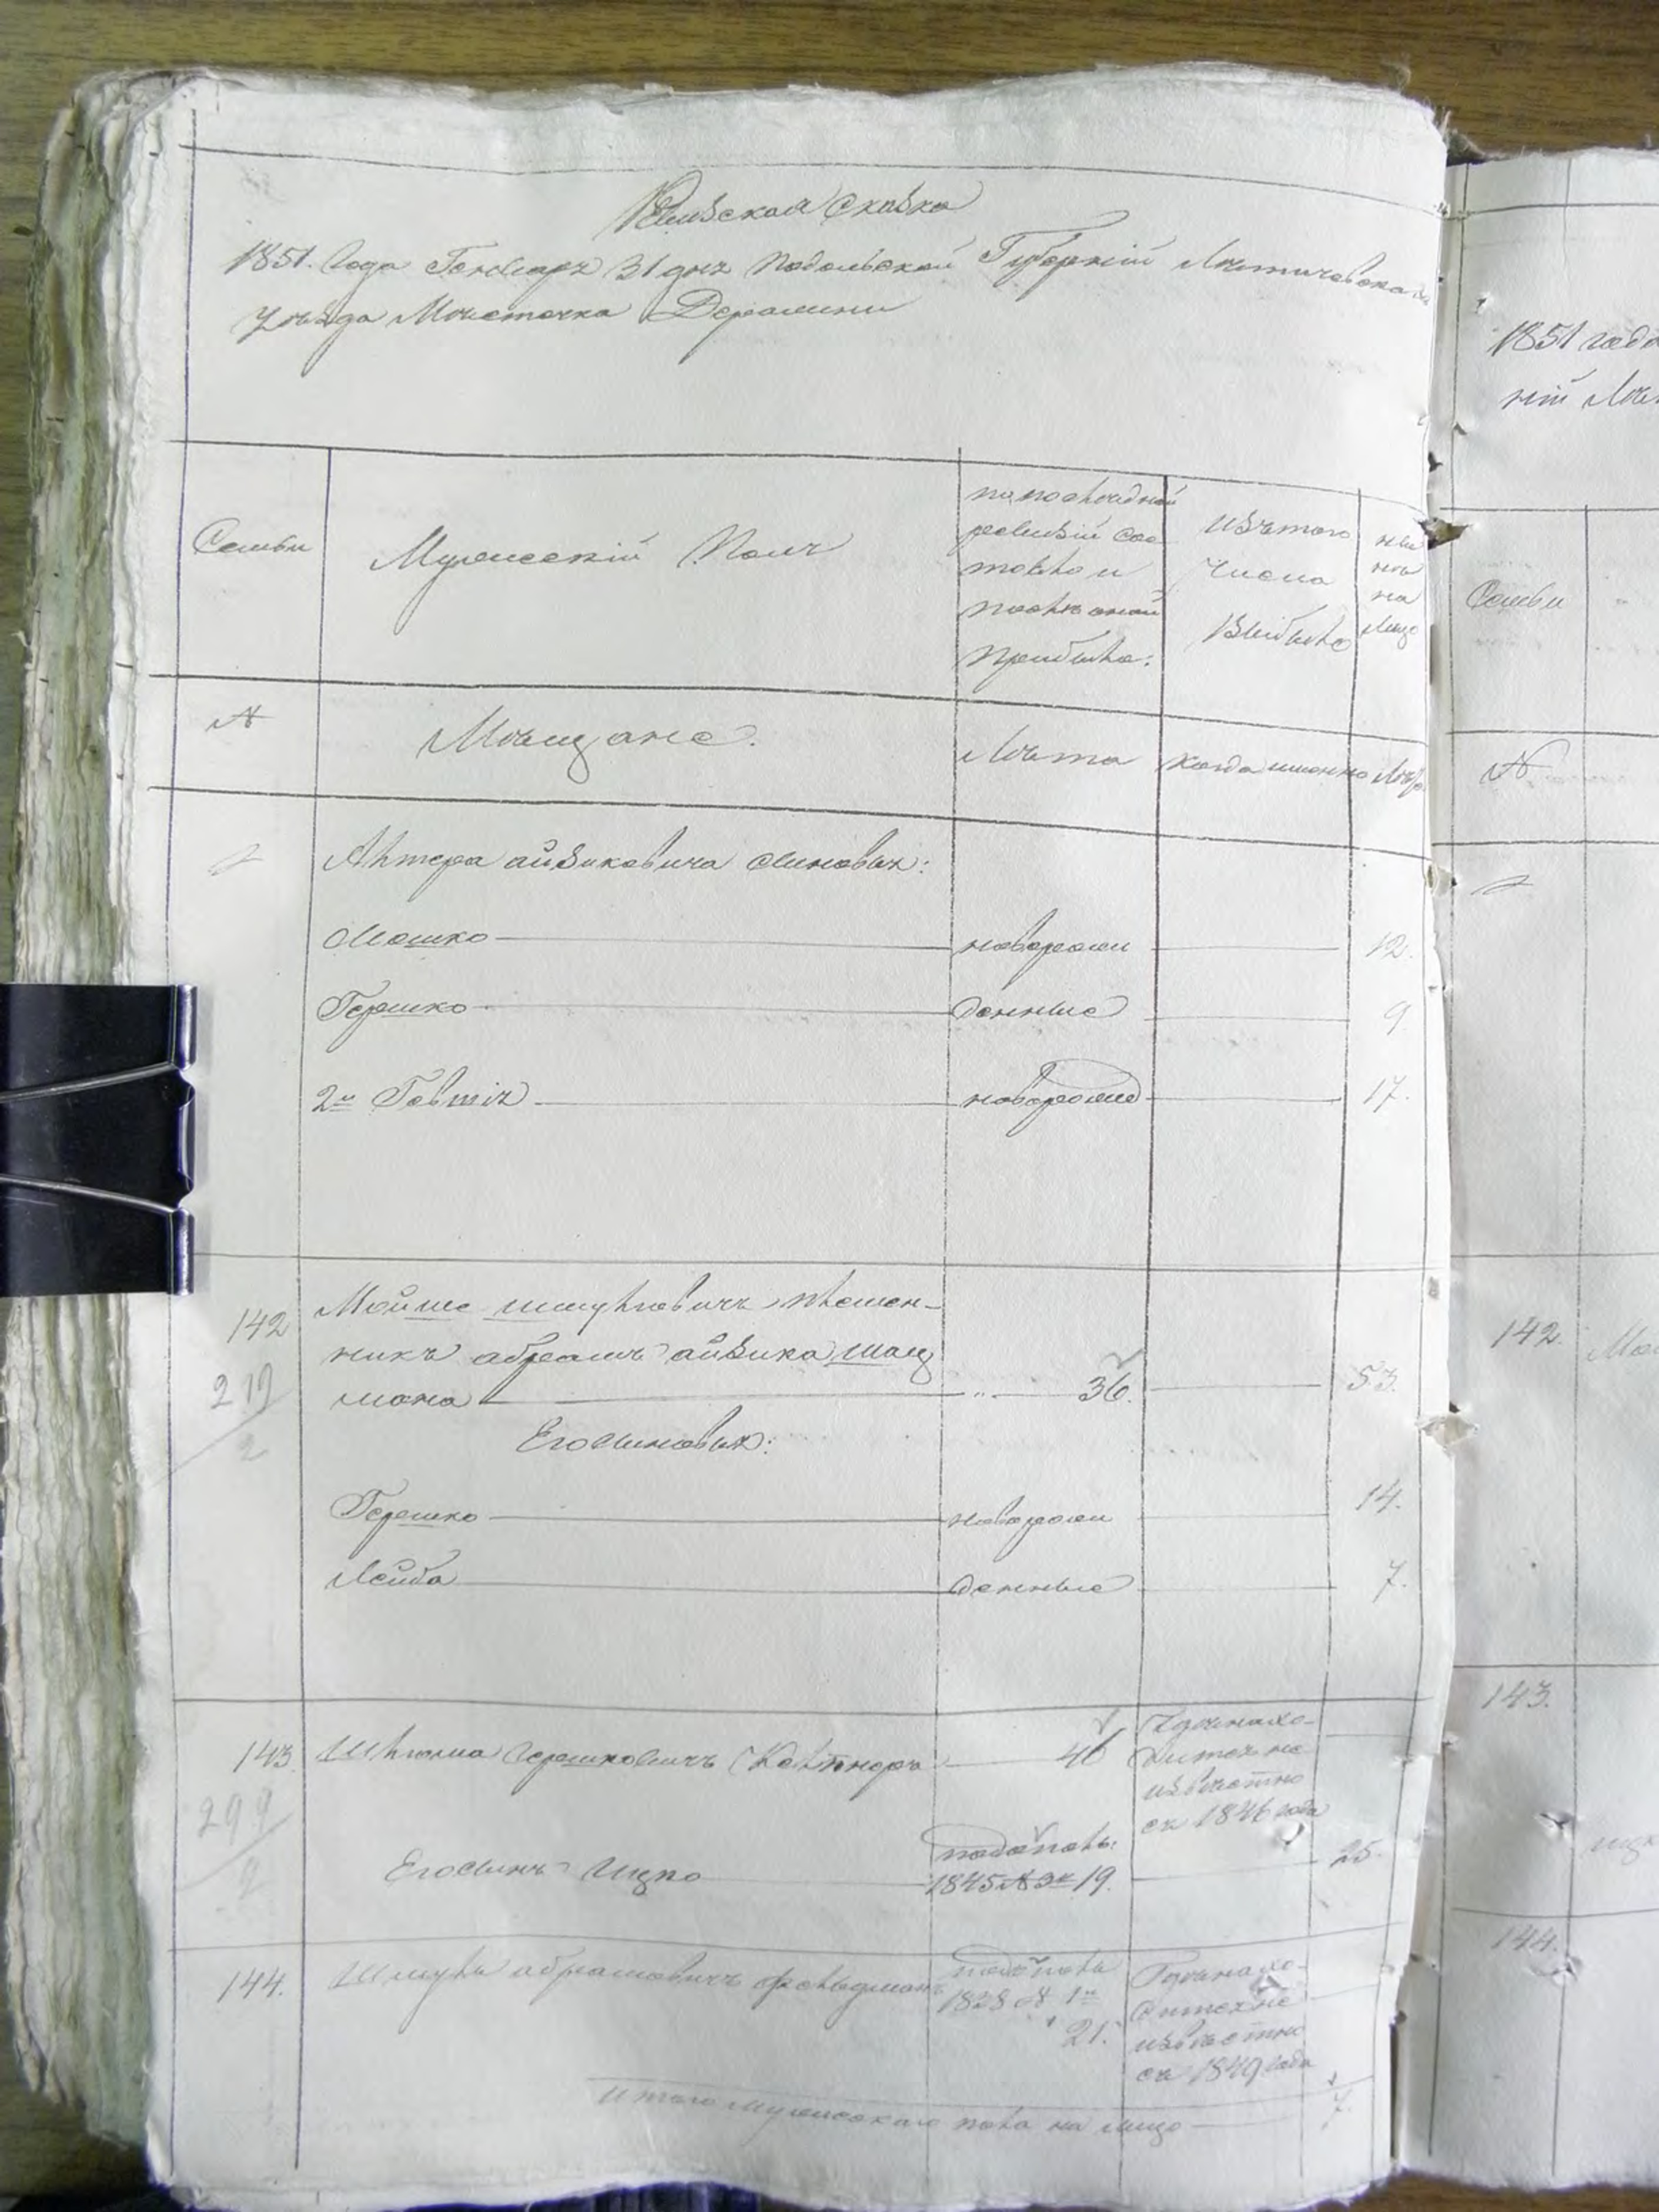 Ревизская Сказка
1851. Года Генваря 31 дня Подольской Губерній Летичевскаго
Уѣзда Мѣстечка Деражни
Семьи
Мужескій Полъ
по последней
ревизій сос
тояло и
послѣ оной
прибыло:
Изъ того
Числа
Выбыло
нын
ѣ
на
лицо
№
Мѣщане.
Лѣта
Когда именно
Лѣта
Альтера айзиковича сыновья:
Мошко
новорож
12.
Гершко
денные
9
2й Говтія
новорожд
17.
142
Мойше шмулiовичъ племен-
никъ абрамъ айзика шац
мана
" 36.
53.
217
2
Его сыновья:
Гершко
новорож
14.
Лейба
денные
7.
143.
Шлiома Гершковичъ
46
Где нахо-
дится не
извѣстно
съ 1846 года
299
2
Его сынъ Ицко
подополн:
1845 № 3й 19.
25.
144.
Шмуль абрамовичъ фельдманъ
подополн
1828 № 1й
21.
Где нахо-
дится не
извѣстно
съ 1849 года
Итого мужескаго пола на лицо
7.
1851 года
ній Лѣ
Семьи
№
142.
143.
144.